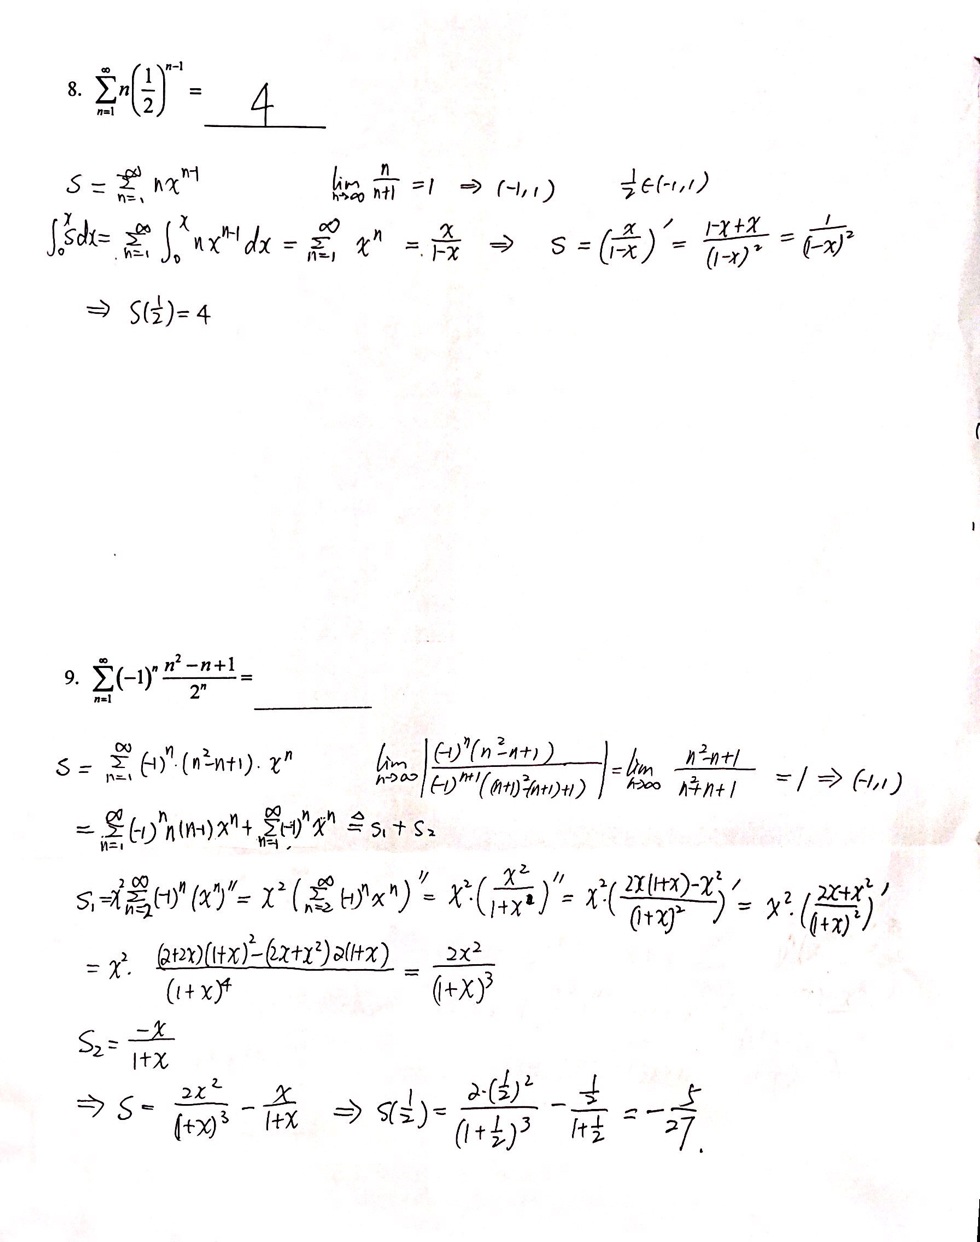 8. ∑_{n=1}^{∞} n(1/2)^{n-1} = 4
S = ∑_{n=1}^{∞} nx^{n-1}    lim_{n→∞} n/(n+1) = 1 ⇒ (-1,1)    1/2 ∈ (-1,1)
∫_0^x S dx = ∑_{n=1}^{∞} ∫_0^x nx^{n-1} dx = ∑_{n=1}^{∞} x^n = x/(1-x) ⇒ S = (x/(1-x))' = (1-x+x)/(1-x)^2 = 1/(1-x)^2
⇒ S(1/2) = 4
9. ∑_{n=1}^{∞} (-1)^n (n^2-n+1)/2^n = 
S = ∑_{n=1}^{∞} (-1)^n·(n^2-n+1)·x^n    lim_{n→∞} |(-1)^n(n^2-n+1)/((-1)^{n+1}((n+1)^2-(n+1)+1))| = lim_{n→∞} (n^2-n+1)/(n^2+n+1) = 1 ⇒ (-1,1)
= ∑_{n=1}^{∞} (-1)^n n(n-1)x^n + ∑_{n=1}^{∞} (-1)^n x^n ≜ S_1 + S_2
S_1 = x^2 ∑_{n=2}^{∞} (-1)^n (x^n)'' = x^2 (∑_{n=2}^{∞} (-1)^n x^n)'' = x^2·(x^2/(1+x))'' = x^2·((2x(1+x)-x^2)/(1+x)^2)' = x^2·((2x+x^2)/(1+x)^2)'
= x^2·((2+2x)(1+x)^2-(2x+x^2)2(1+x))/(1+x)^4 = 2x^2/(1+x)^3
S_2 = -x/(1+x)
⇒ S = 2x^2/(1+x)^3 - x/(1+x) ⇒ S(1/2) = 2·(1/2)^2/(1+1/2)^3 - (1/2)/(1+1/2) = -5/27.